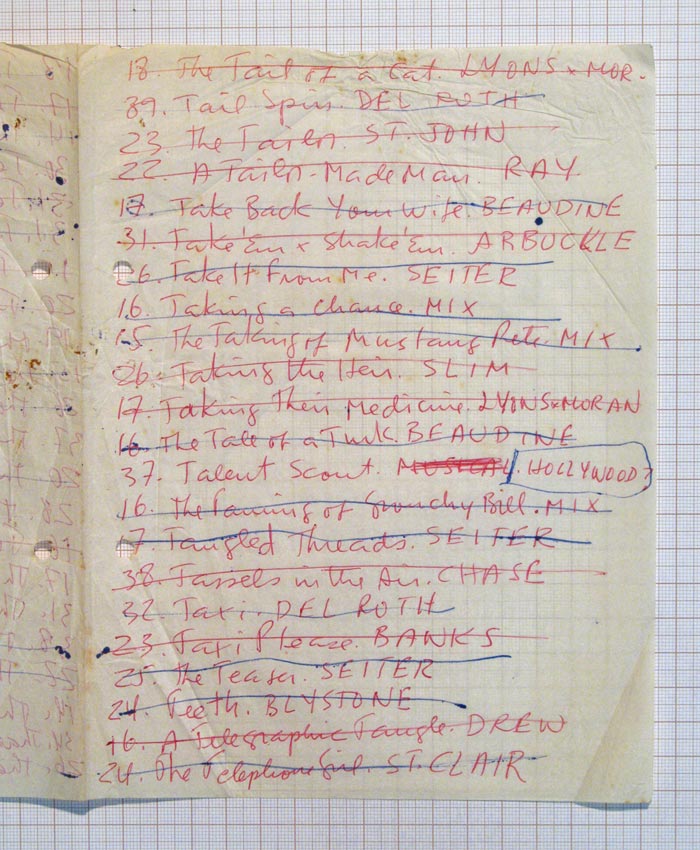 18. The Tail of a Cat. LYONS x MOR.
39. Tail Spin. DEL RUTH
23. The Tailor. ST. JOHN
22. A Tailor-Made Man. RAY
17. Take Back Your Wife. BEAUDINE
31. Take 'Em x Shake 'Em. ARBUCKLE
26. Take It From Me. SEITER
16. Taking a Chance. MIX
15. The Taking of Mustang Pete. MIX
26. Taking the Heir. SLIM
17. Taking Their Medicine. LYONS x MORAN
16. The Tale of a Turk. BEAUDINE
37. Talent Scout. MUSICAL. HOLLYWOOD?
16. The Taming of Grouchy Bill. MIX
17. Tangled Threads. SEITER
38. Tassels in the Air. CHASE
32. Taxi. DEL RUTH
23. Taxi Please. BANKS
25. The Teaser. SEITER
24. Teeth. BLYSTONE
16. A Telegraphic Tangle. DREW
24. The Telephone Girl. ST. CLAIR